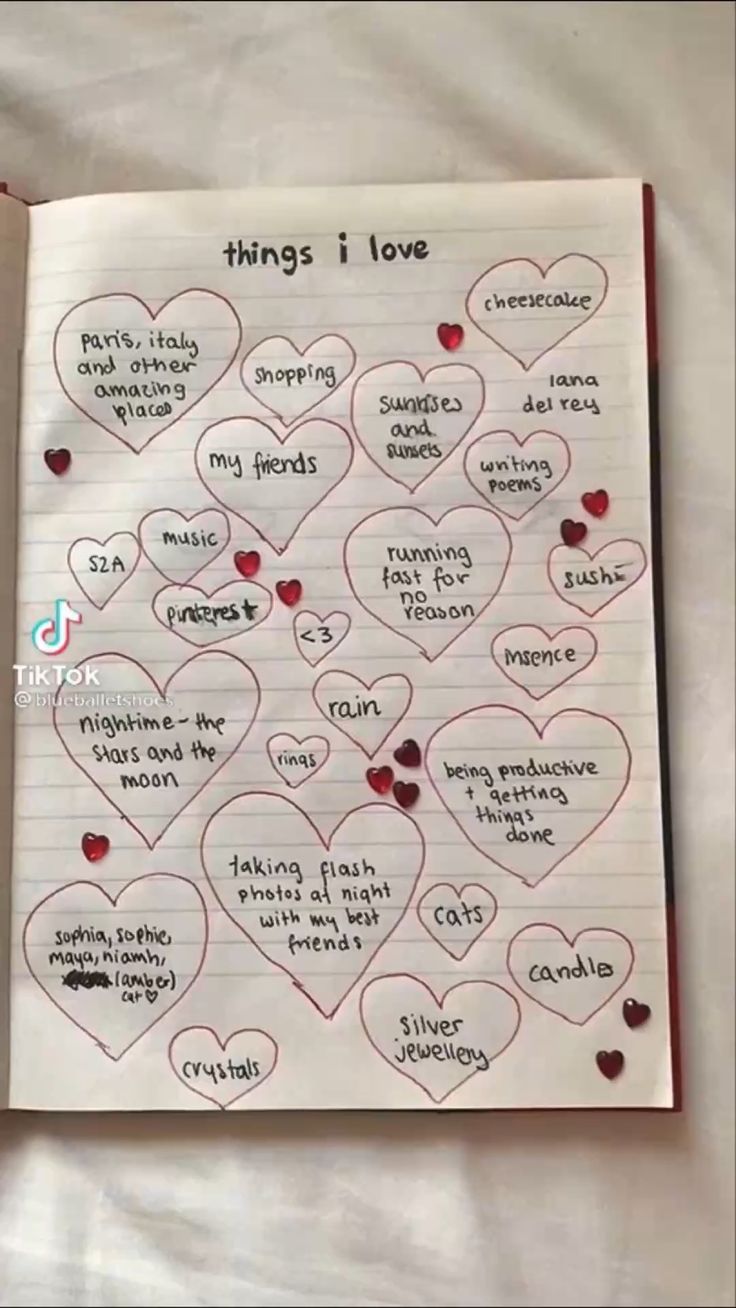 things i love
cheesecake
paris, italy
and other
amazing
places
shopping
sunrises
and
sunsets
lana
del rey
my friends
writing
poems
S2A
music
running
fast for
no
reason
sushi
pinterest
<3
insence
TikTok
@blueballetshoes
nightime - the
stars and the
moon
rain
rings
being productive
+ getting
things
done
taking flash
photos at night
with my best
friends
cats
sophia, sophie,
maya, niamh,
(amber)
cat ♡
candles
silver
jewellery
crystals